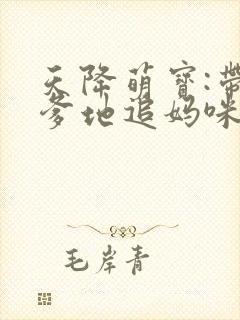 天降萌寶:帶
爹地追妈咪
毛岸青